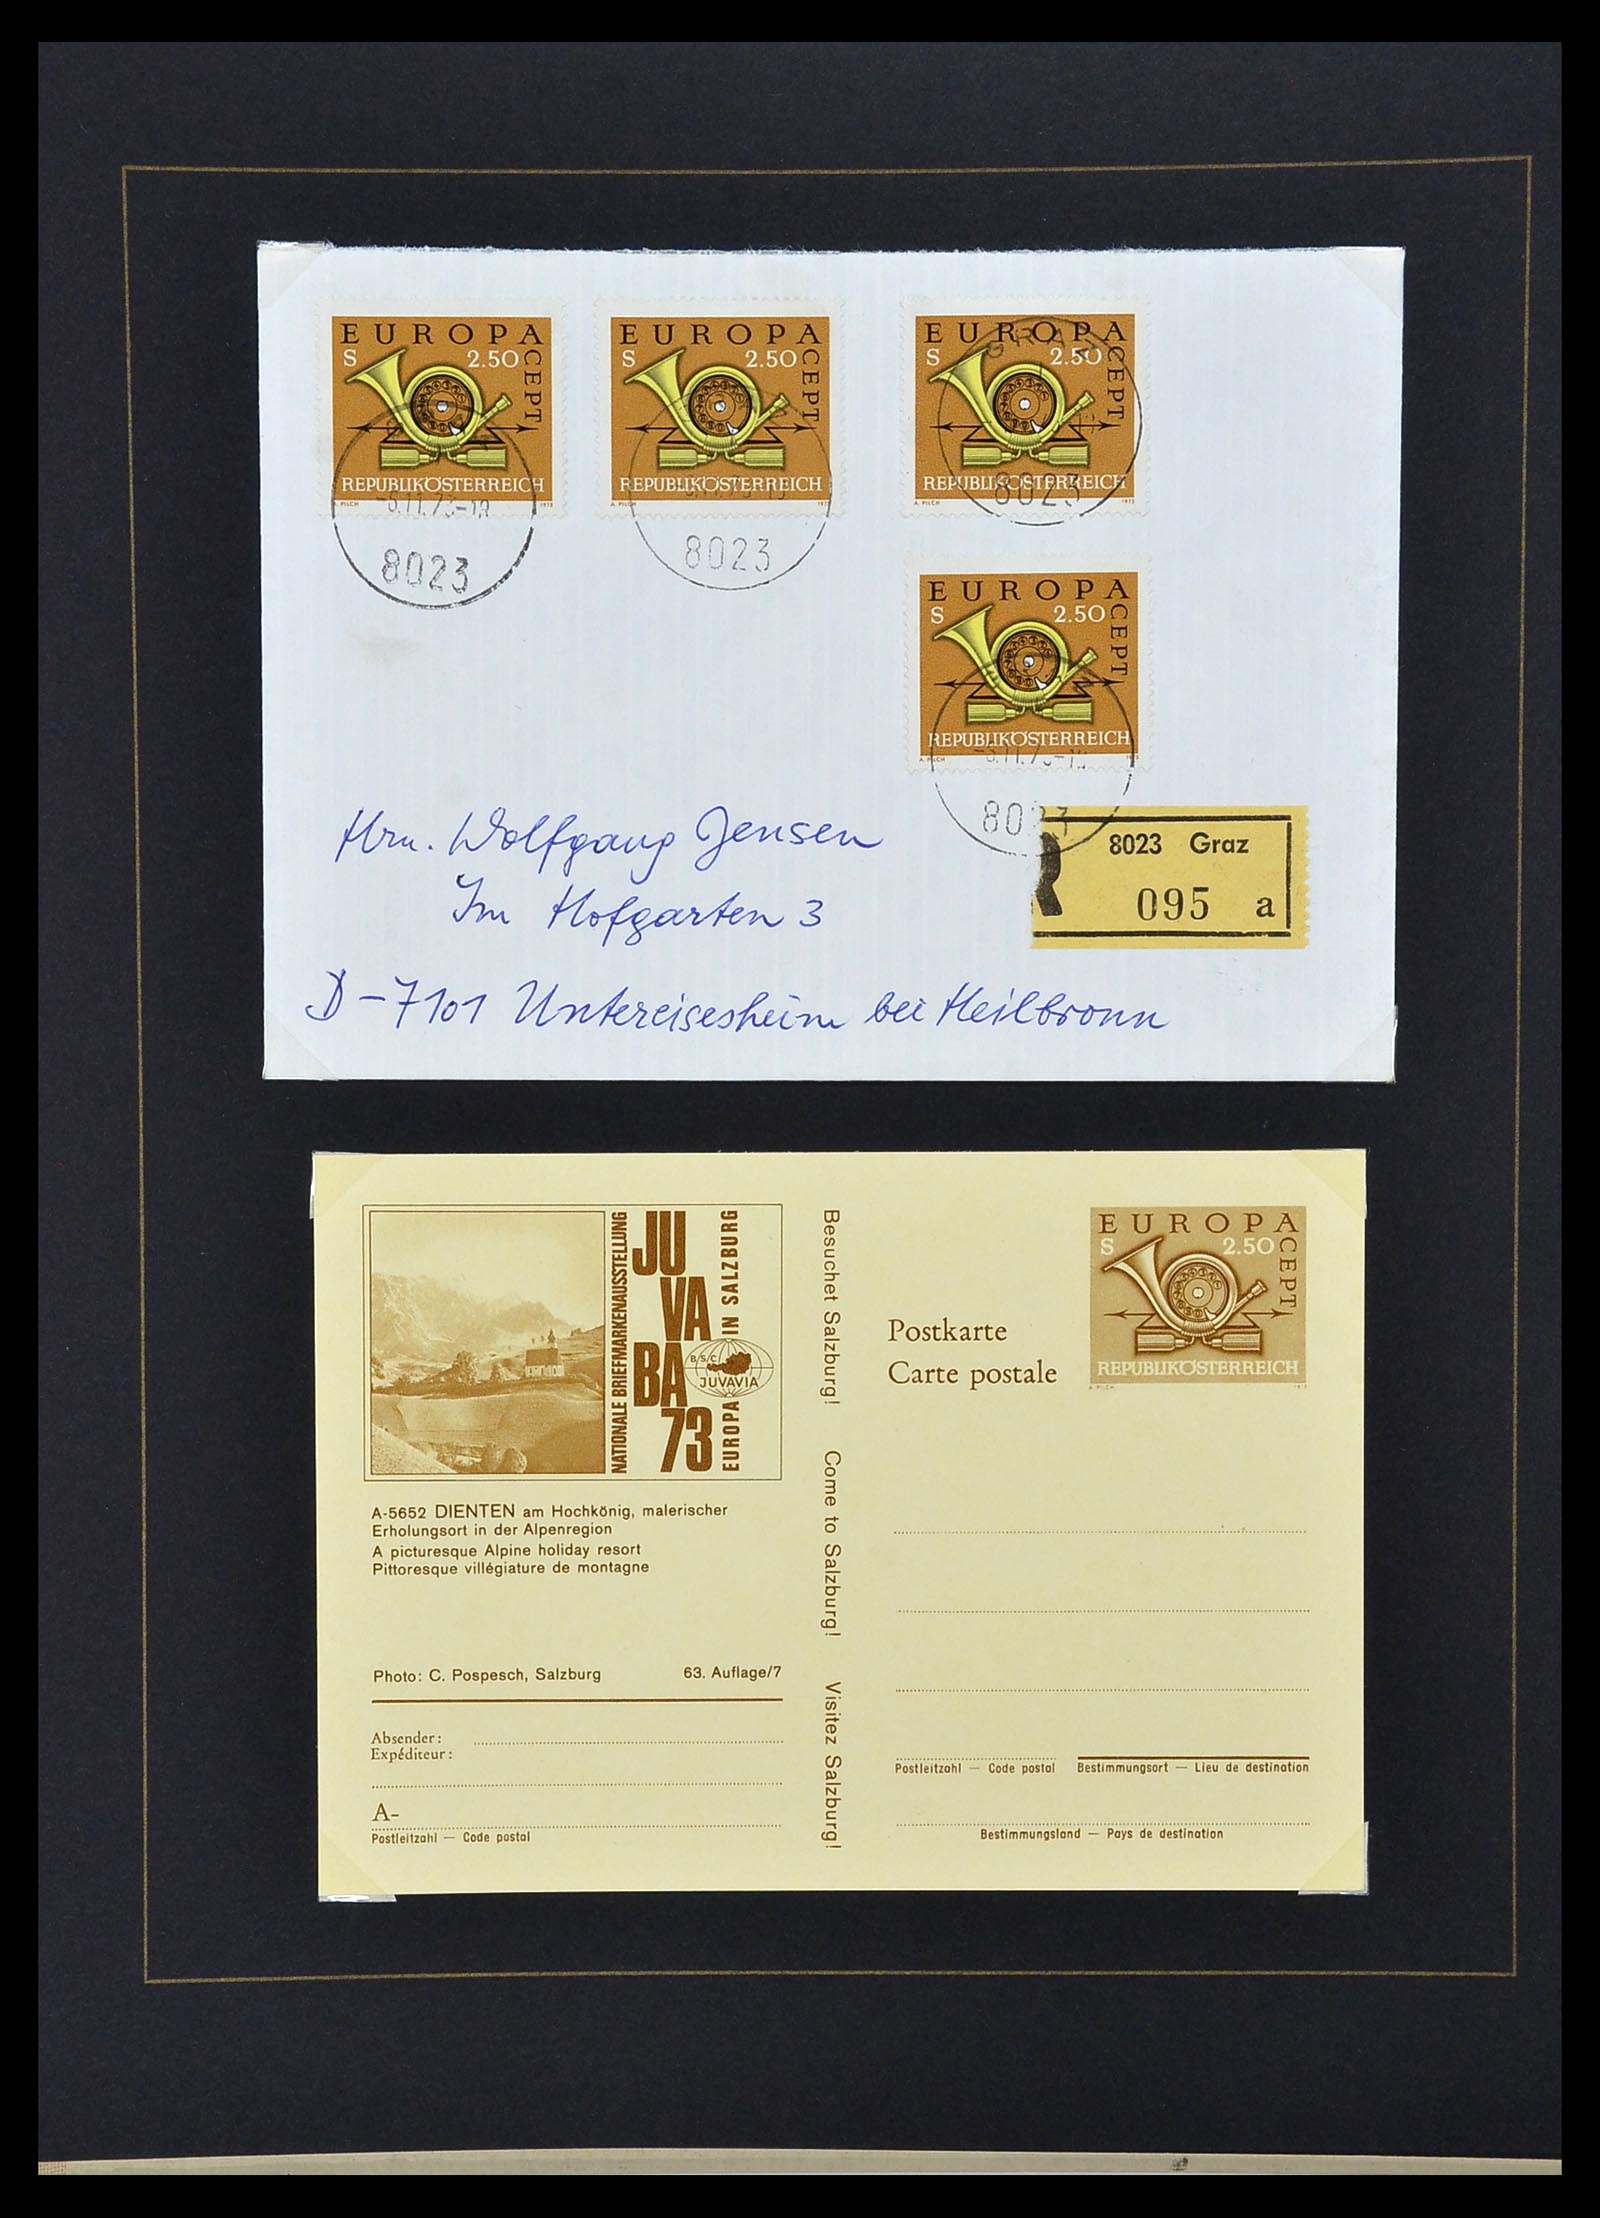 EUROPA
CEPT
S 2.50
REPUBLIK ÖSTERREICH
A. PILCH 1973
EUROPA
CEPT
S 2.50
REPUBLIK ÖSTERREICH
A. PILCH
EUROPA
CEPT
S 2.50
REPUBLIK ÖSTERREICH
A. PILCH 1973
GRAZ
8023
8023
8023
EUROPA
CEPT
S 2.50
REPUBLIK ÖSTERREICH
A. PILCH 1973
8023
R 8023 Graz
095 a
Hrn. Wolfgang Jensen
Im Hofgarten 3
D-7101 Untereisesheim bei Heilbronn
NATIONALE BRIEFMARKENAUSSTELLUNG
JU
VA
BA
73
EUROPA IN SALZBURG
BSC
JUVAVIA
A-5652 DIENTEN am Hochkönig, malerischer
Erholungsort in der Alpenregion
A picturesque Alpine holiday resort
Pittoresque villégiature de montagne
Photo: C. Pospesch, Salzburg 63. Auflage/7
Absender:
Expéditeur:
A-
Postleitzahl — Code postal
Besuchet Salzburg! Come to Salzburg! Visitez Salzburg!
EUROPA
CEPT
S 2.50
REPUBLIK ÖSTERREICH
A. PILCH 1973
Postkarte
Carte postale
Postleitzahl — Code postal Bestimmungsort — Lieu de destination
Bestimmungsland — Pays de destination